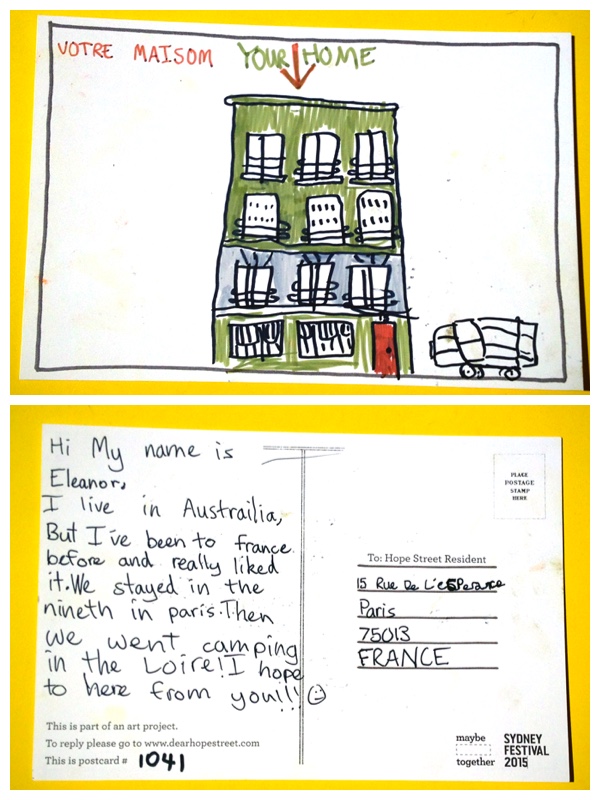 VOTRE MAISOM YOUR HOME
Hi My name is
Eleanor,
I live in Austrailia,
But I've been to france
before and really liked
it.We stayed in the
nineth in paris.Then
we went camping
in the Loire!I hope
to here from you!!!
This is part of an art project.
To reply please go to www.dearhopestreet.com
This is postcard # 1041
PLACE
POSTAGE
STAMP
HERE
To: Hope Street Resident
15 Rue De L'esperance
Paris
75013
FRANCE
maybe
together
SYDNEY
FESTIVAL
2015